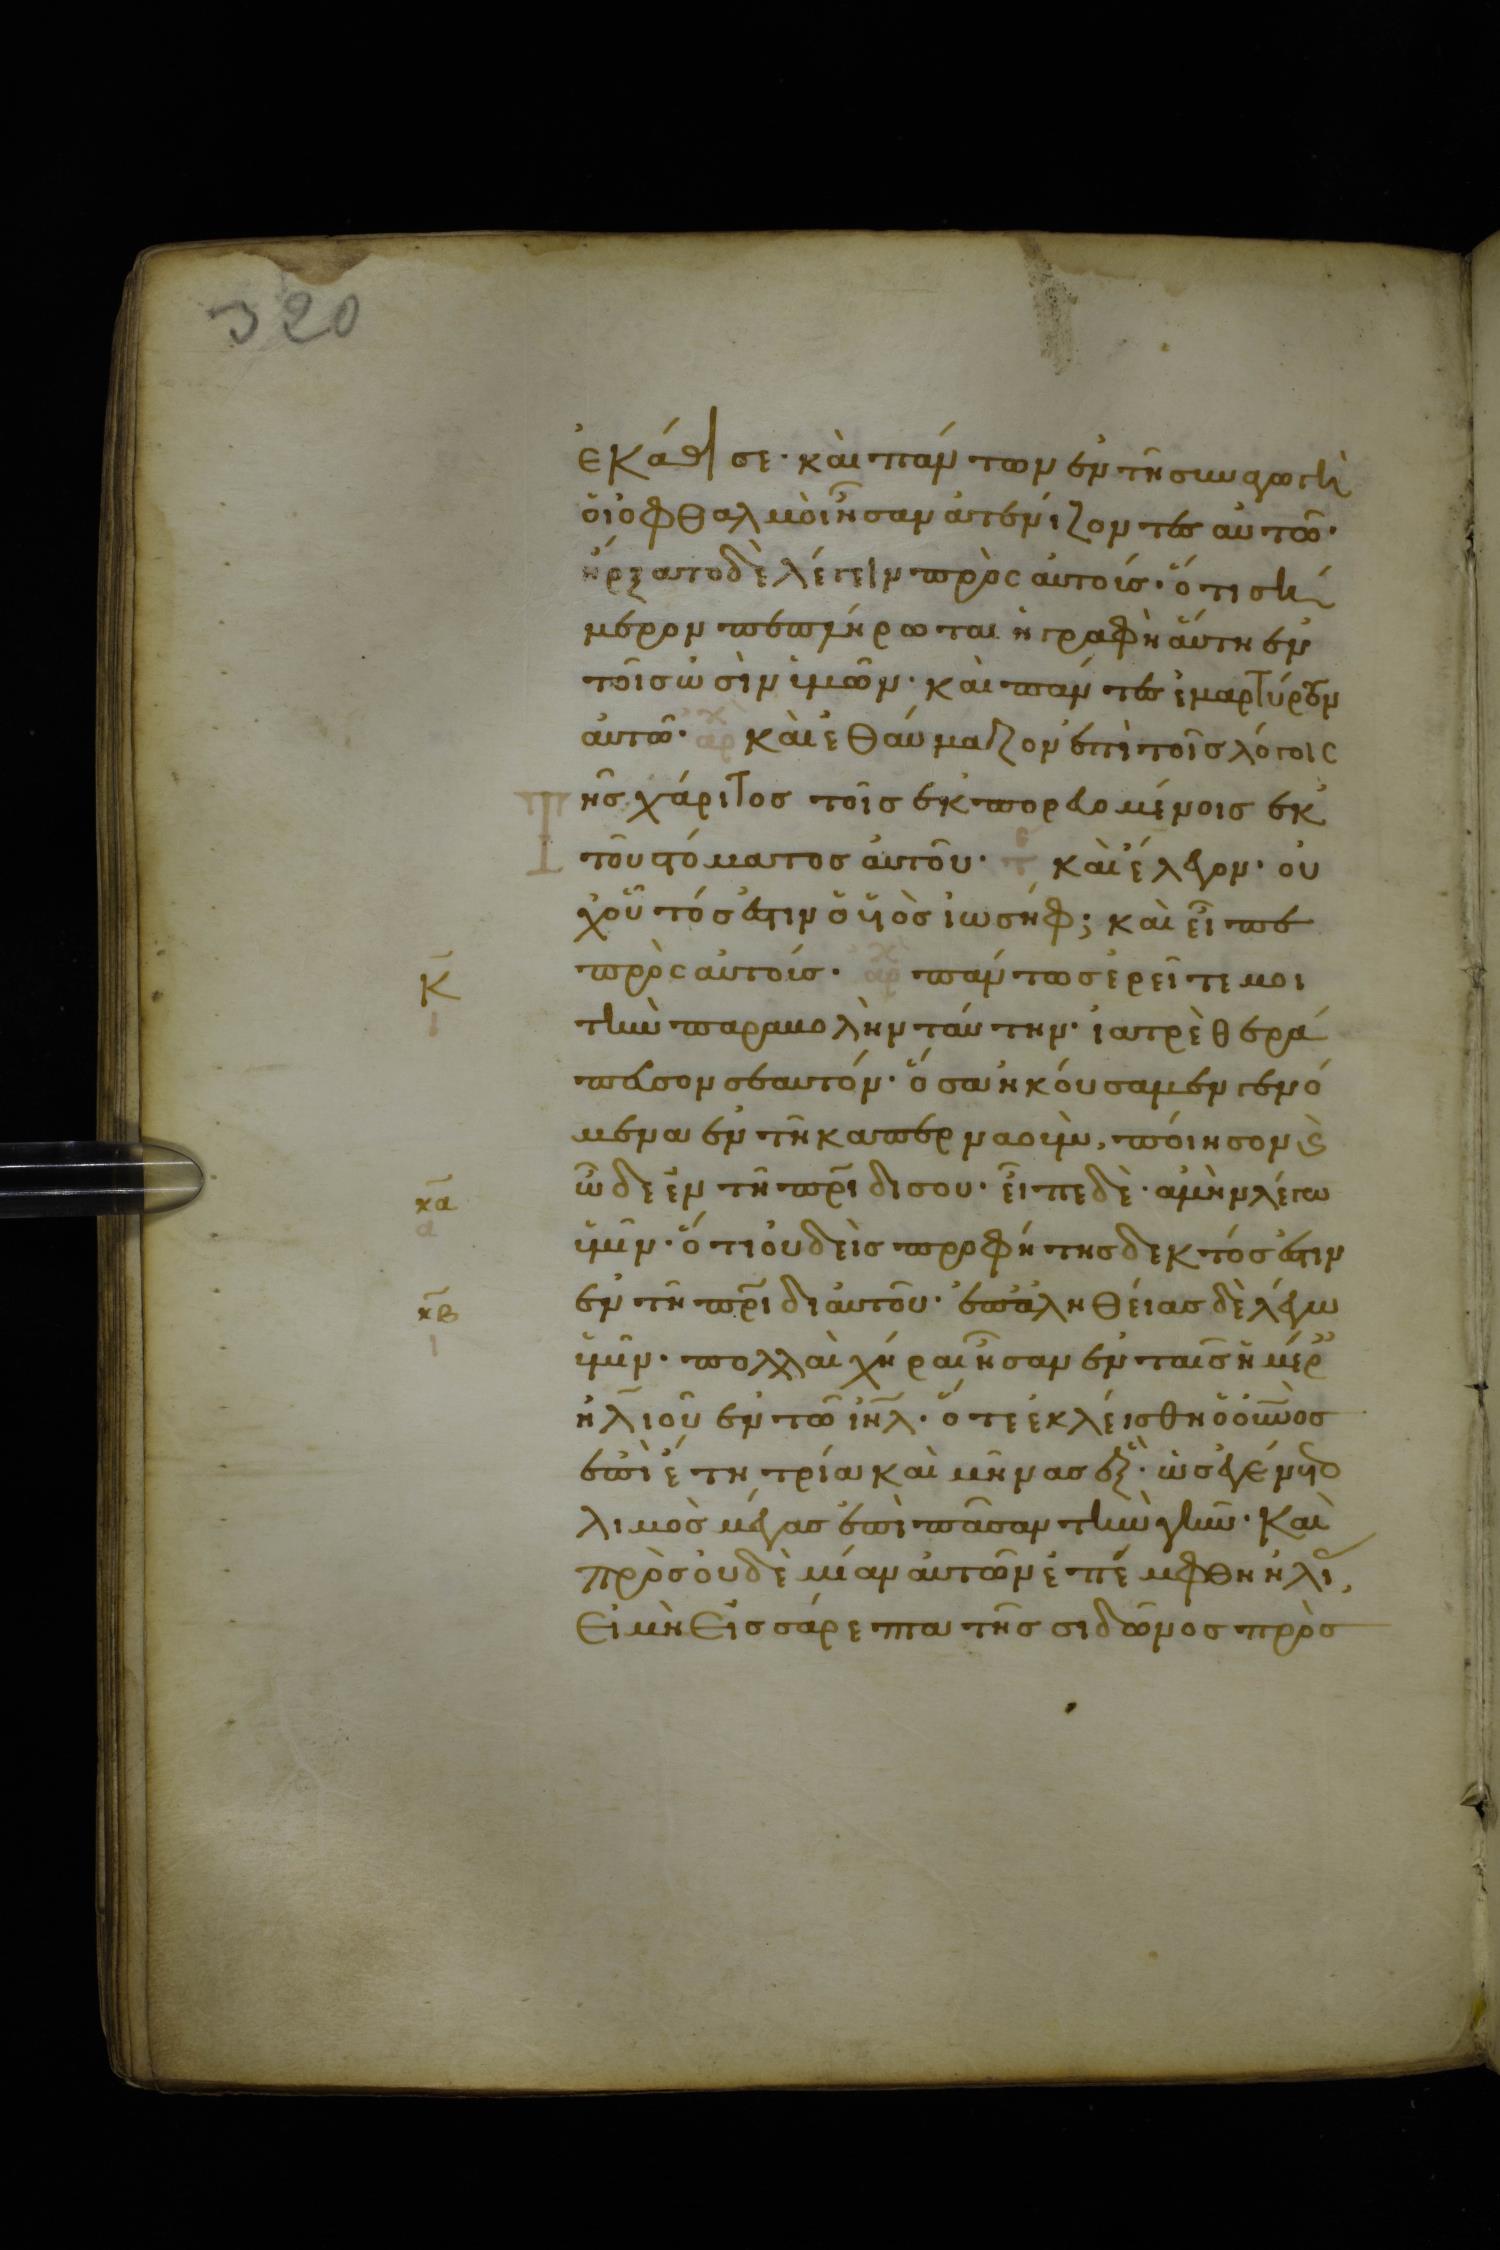 320
ἐκάθισε· καὶ πάντων ἐν τῆ συναγωγῆ
οἱ ὀφθαλμοὶ ἦσαν ἀτενίζοντες αὐτῶ·
ἤρξατο δὲ λέγειν πρὸς αὐτούς· ὅτι σή
μερον πεπλήρωται ἡ γραφὴ αὕτη ἐν
τοῖς ὠσὶν ὑμῶν· καὶ πάντες ἐμαρτύρουν
αὐτῶ· αρχ καὶ ἐθαύμαζον ἐπὶ τοῖς λόγοις
Τ ῆς χάριτος τοῖς ἐκπορευομένοις ἐκ
τοῦ στόματος αὐτοῦ· τε καὶ ἔλεγον· οὐ
χ οὗτός ἐστιν ὁ υἱὸς ἰωσήφ; καὶ εἶπε
κ πρὸς αὐτούς· αρχ πάντως ἐρεῖτέ μοι
ι τὴν παραβολὴν ταύτην· ἰατρὲ θερά
πευσον σεαυτόν· ὅσα ἠκούσαμεν γενό
μενα ἐν τῆ καπερναούμ, ποίησον καὶ
κα ὧδε ἐν τῆ πρίδι σου· εἶπε δὲ· ἀμὴν λέγω
α ὑμῖν· ὅτι οὐδεὶς προφήτης δεκτός ἐστιν
κβ ἐν τῆ πρίδι αὐτοῦ· ἐπ ἀληθείας δὲ λέγω
ι ὑμῖν· πολλαὶ χῆραι ἦσαν ἐν ταῖς ἡμέρ
ἠλιοῦ ἐν τῶ ἰηλ· ὅτε ἐκλείσθη ὁ οὐνος
ἐπὶ ἔτη τρία καὶ μῆνας ἕξ· ὡς ἐγένετο
λιμὸς μέγας ἐπὶ πᾶσαν τὴν γῆν· καὶ
πρὸς οὐδεμίαν αὐτῶν ἐπέμφθη ἠλί
εἰ μὴ εἰς σάρεπτα τῆς σιδῶνος πρὸς